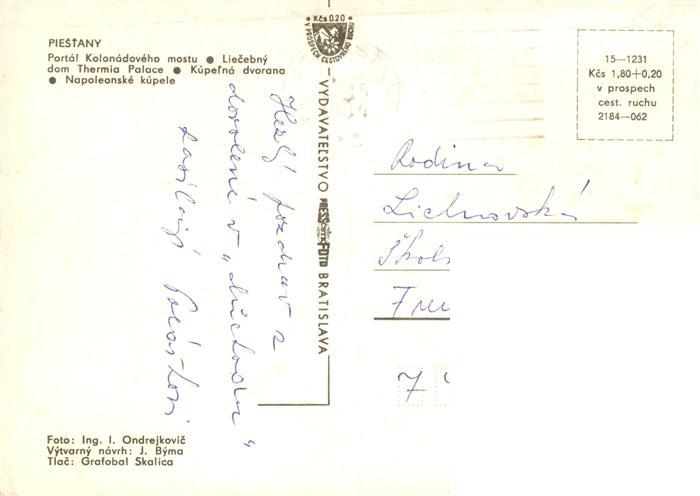 PIEŠŤANY
Portál Kolonádového mostu ● Liečebný
dom Thermia Palace ● Kúpeľná dvorana
● Napoleonské kúpele
Kčs 0.20
V PROSPECH CESTOVNÉHO RUCHU
15—1231
Kčs 1,80+0,20
v prospech
cest. ruchu
2184—062
VYDAVATEĽSTVO PRESSFOTO BRATISLAVA
Hezký pozdrav z
dovolené v „
zasílají
Rodina
Lichnovská
Škols
Fren
7
Foto: Ing. I. Ondrejkovič
Výtvarný návrh: J. Býma
Tlač: Grafobal Skalica